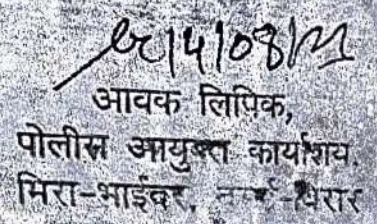 14/08/21
आवक लिपिक,
पोलीस आयुक्त कार्यालय.
मिरा-भाईंदर, वसई-विरार